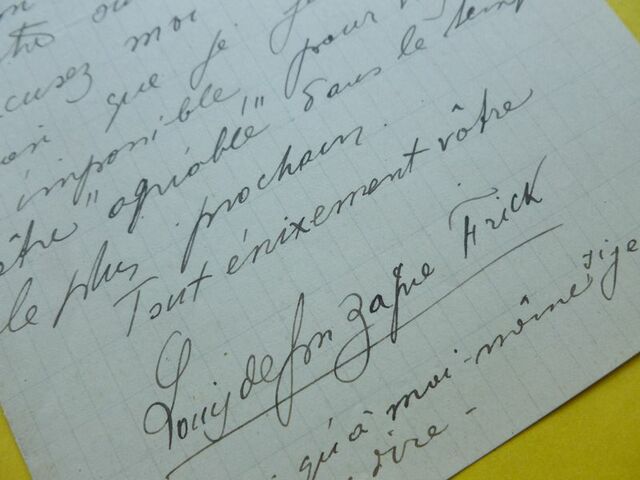 excusez moi
que je
imposible", pour
être "agréable dans le temp
le plus prochain.
Tout énixement vôtre
Louis de Gonzague Frick
qu'à moi-même, si je
dire -